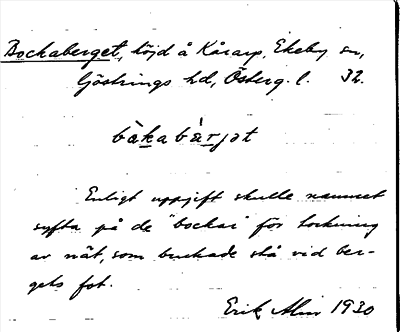 Bockaberget, höjd å Kårarp, Ekeby sn,
Göstrings hd, Österg. l. 32.
bàka bàrjət
Enligt uppgift skulle namnet
syfta på de "bockar" för torkning
av nät, som brukade stå vid ber-
gets fot.
Erik Alin 1930